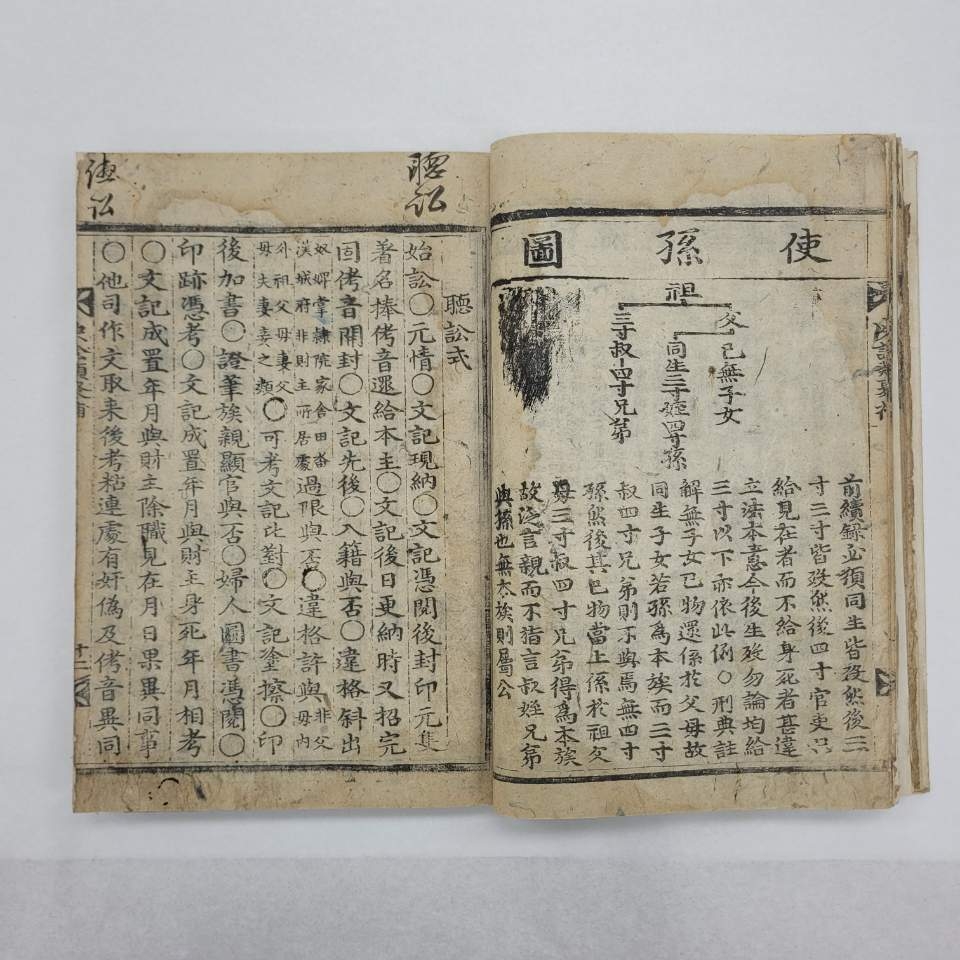 使孫圖
祖
父
己無子女
同生三寸姪四寸孫
三寸叔四寸兄弟
前續錄必須同生皆歿然後三
寸三寸皆歿然後四寸官吏只
給見在者而不給身死者甚違
立法本意今後生歿勿論均給
三寸以下亦依此例○刑典註
解無子女己物還係於父母故
同生子女若孫爲本族而三寸
叔四寸兄弟則不與焉無四寸
孫然後其己物當上係於祖父
母三寸叔四寸兄弟得爲本族
故泛言親而不指言叔姪兄弟
與孫也無本族則屬公
聽訟
聽訟式
始訟○元情○文記現納○文記憑閱後封印元隻
著名捧侤音還給本主○文記後日更納時又招完
固侤音開封○文記先後○入籍與否○違格斜出
奴婢掌隷院家舍田畓
漢城府非則主所居處
過限與否○違格許與
非父
母內
外祖父母妻父
母夫妻妾之類
○可考文記比對○文記塗擦○印
後加書○證筆族親顯官與否○婦人圖書憑閱○
印跡憑考○文記成置年月與財主身死年月相考
○文記成置年月與財主除職見在月日果異同事
○他司作文取來後考粘連處有奸僞及侤音異同
十二